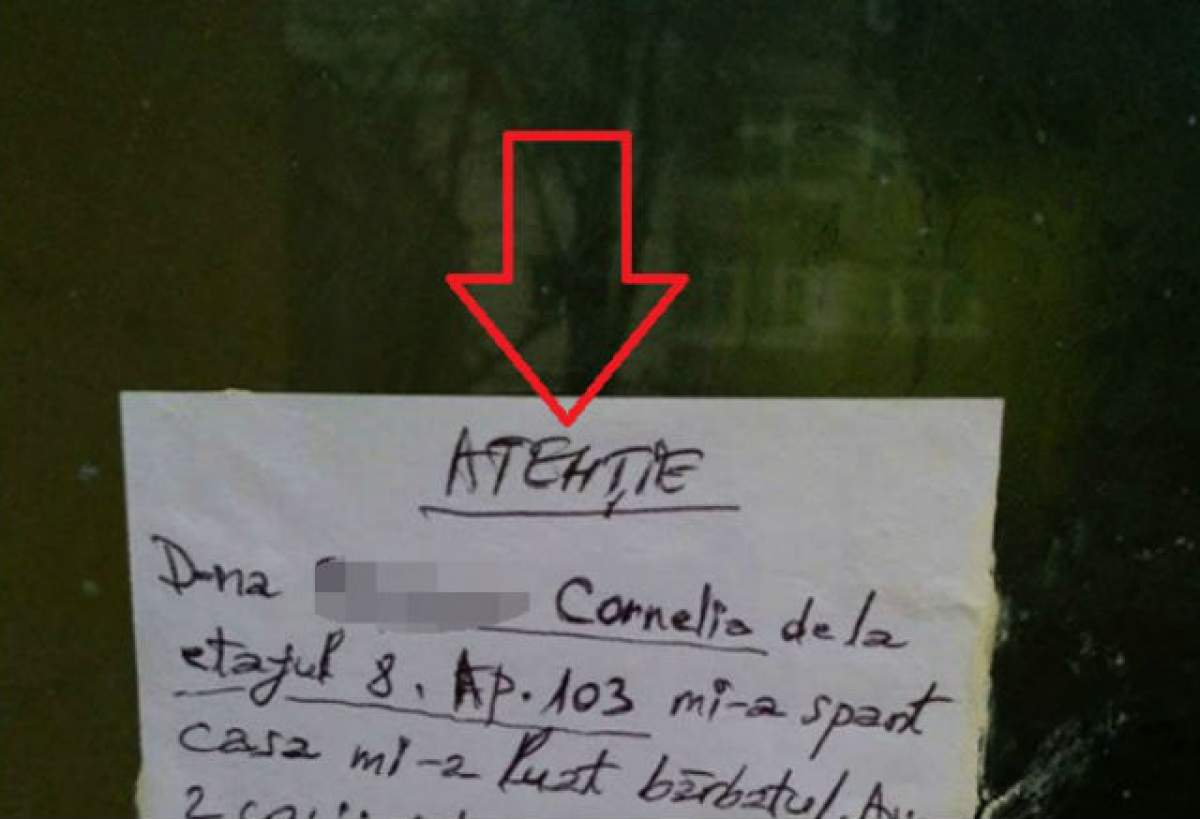 ATENȚIE
D-na Cornelia de la
etajul 8. Ap. 103 mi-a spart
casa mi-a luat bărbatul. Au
2 copii